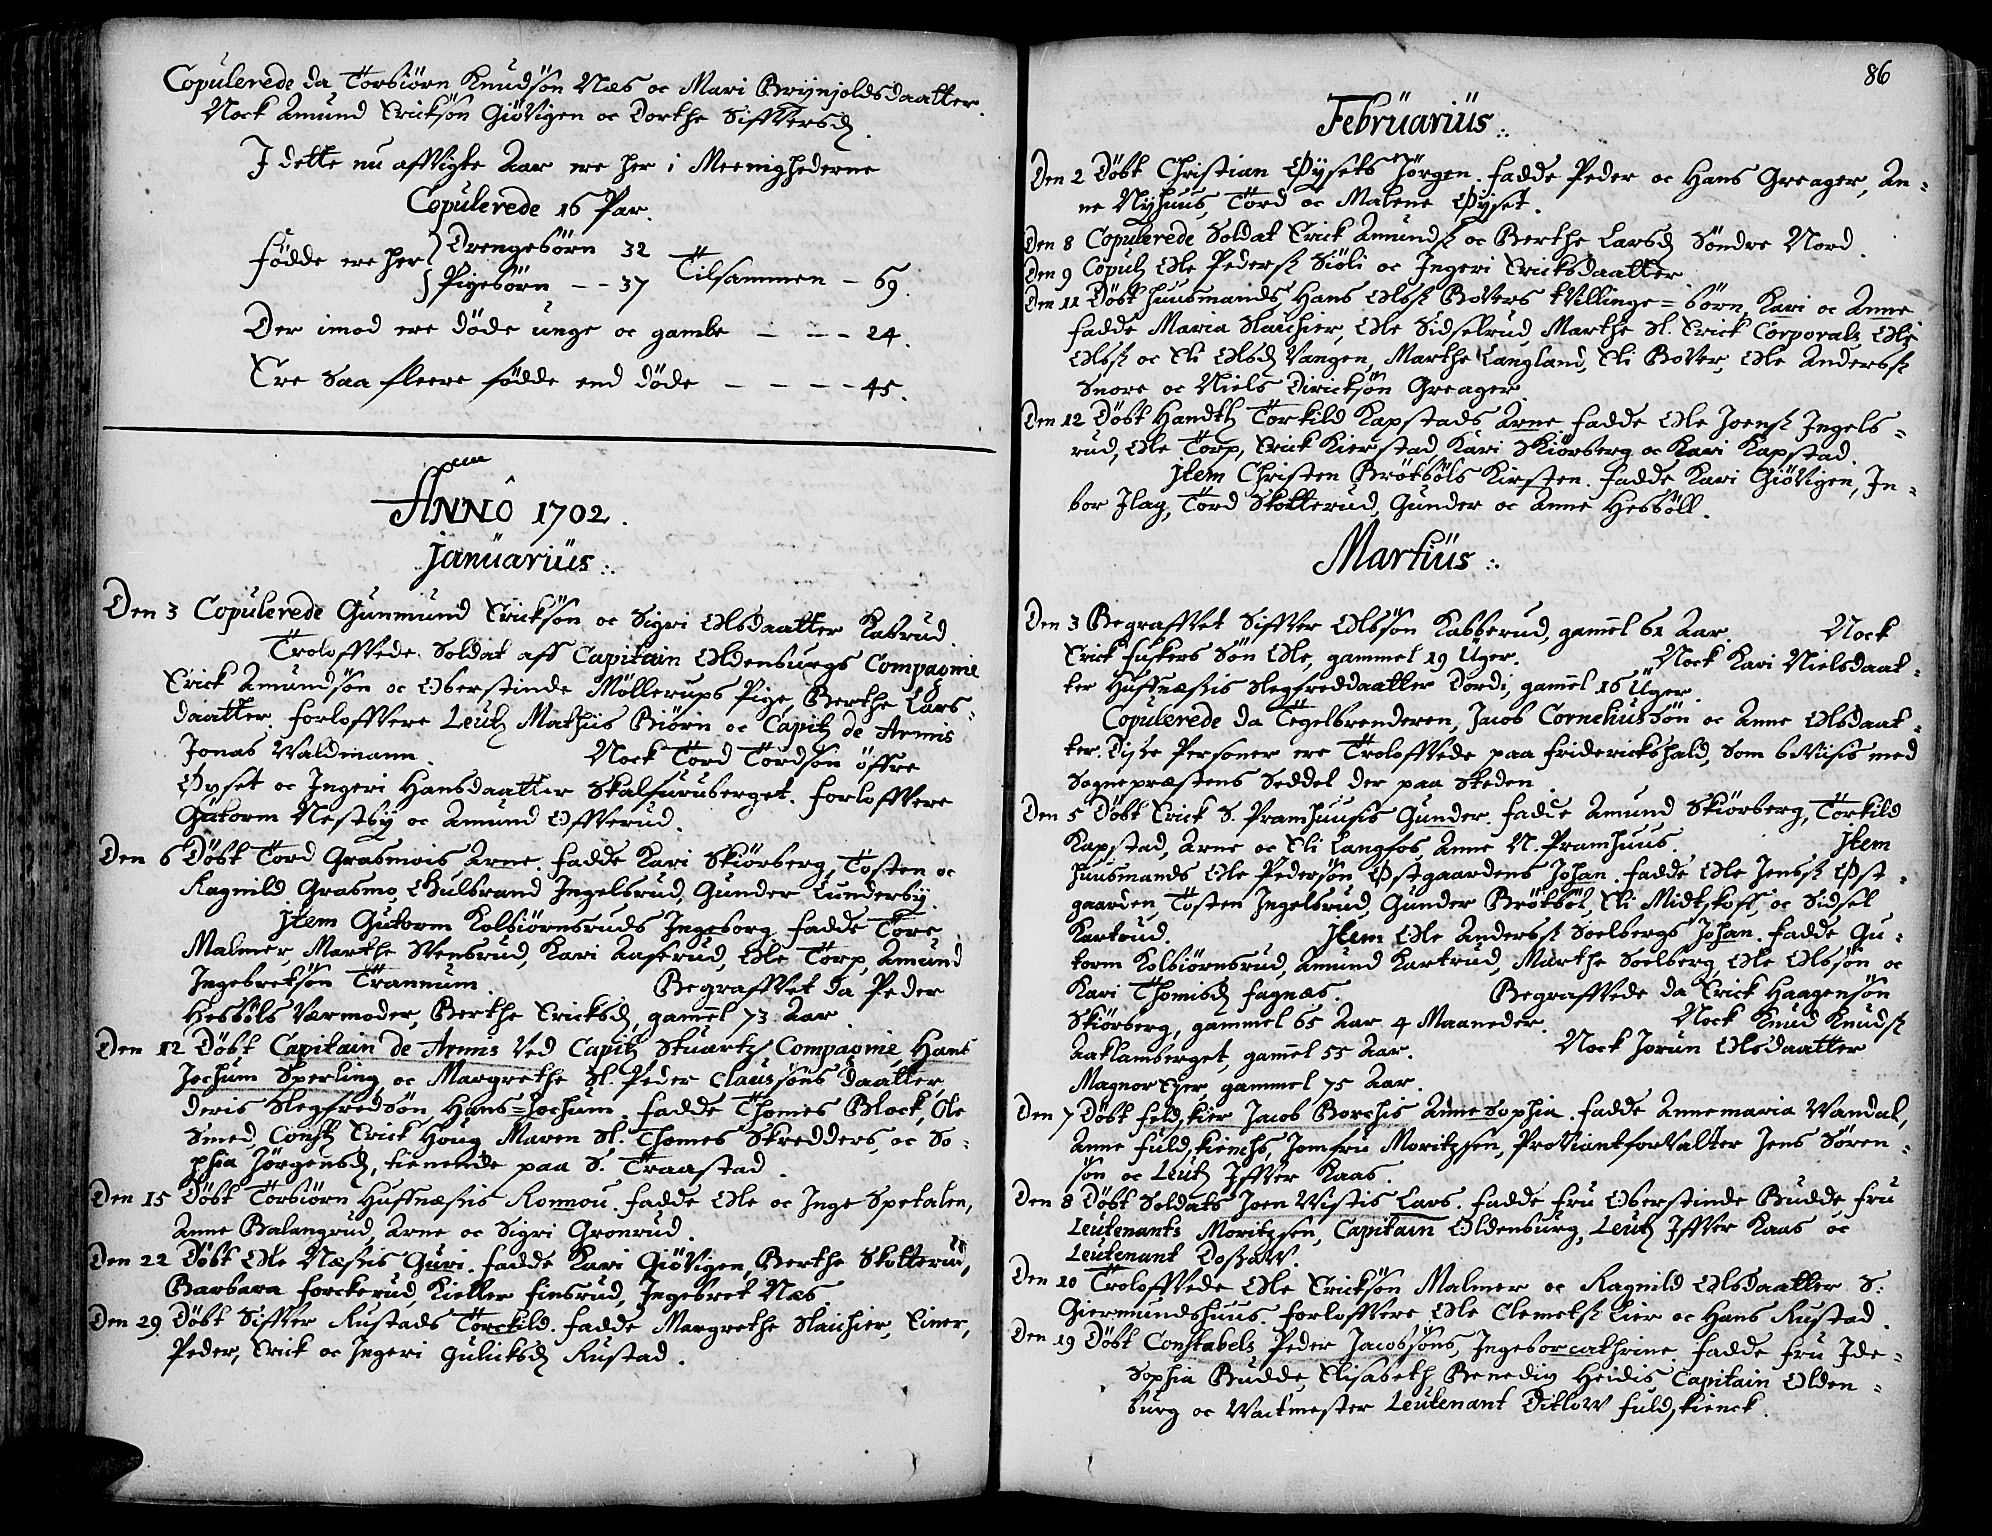 Copulerede da Torbiörn Knudsön Næs oc Mari Brynjoldsdaatter.
Nock Amund Ericksön Giövigen oc Dorthe Siffversd.
I dette nu affvigte Aar ere her i Meenighederne
Copulerede 16 Par.
Födde ere her Drengebörn 32
Pigebörn - - 37 Tilsammen - 69.
Der imod ere döde unge oc gamle - - - - 24.
Ere saa fleere födde end döde - - - - 45.
ANNO 1702.
Januarius.
Den 3 Copulerede Gunmund Ericksön oc Sigri Olsdaatter Kabrud.
Troloffvede Soldat aff Capitain Oldenburgs Compagnie
Erick Amundsön oc Oberstinde Möllerups Pige, Berthe Lars-
daatter. Forloffvere Leut Mathiis Biörn oc Capit de Armis
Jonas Waldmann. Nock Tord Tordsön öffre
Öyset oc Ingeri Hansdaatter Skalburuberget. Forloffvere
Gutorm Nestby oc Amund Offverud.
Den 6 Döbt Tord Grasmois Arne. Fadde Kari Skiörberg, Tosten oc
Ragnild Grasmo, Gulbrand Ingelsrud, Gunder Lundersby.
Item Gutorm Kolbiörnsruds Ingeborg. Fadde Tore
Malmer, Marthe Stensrud, Kari Aaserud, Ole Torp, Amund
Ingebretsön Trannum. Begraffvet da Peder
Hesböls Værmoder, Berthe Ericksd, gammel 73 Aar.
Den 12 Döbt Capitain de Armis ved Capit Stuartz Compagnie, Hans
Jochum Sperling, oc Margrethe Sl. Peder Claussöns daatter
deris Slegfredsön, Hans-Jochum. Fadde Thomes Block, Ole
Smed, Const Erick Houg, Maren Sl. Thomes Skredders, oc So-
phia Jörgensd, tienende paa S. Traastad.
Den 15 Döbt Torbiörn Huffnæssis Ronnou. Fadde Ole oc Inge Spetalen,
Anne Balangrud, Arne oc Sigri Gronrud.
Den 22 Döbt Ole Næssis Guri. Fadde Kari Giövigen, Berthe Skotterud,
Barbara Forckerud, Kieller Finsrud, Ingebret Næs
Den 29 Döbt Siffver Rustads Torckild. Fadde Margrethe Slaichier, Einer,
Peder, Erick oc Ingeri Gulicksd Rustad.
86
Februarius.
Den 2 Döbt Christian Öysets Jörgen. Fadde Peder oc Hans Greager, An-
ne Nyhuus, Tord oc Malene Öyset.
Den 8 Copulerede Soldat Erick Amunds oc Berthe Larsd Söndre Nord.
Den 9 Copul Ole Peders Siöli oc Ingeri Ericksdaatter
Den 11 Döbt Huusmands, Hans Olss Bovers tvillinge-börn, Kari oc Anne
Fadde Maria Slaichier, Ole Sidselrud, Marthe Sl. Erick Corporals, Ole
Olss oc Eli Olsd Vangen, Marthe Langland, Eli Bover, Ole Anderss
Snore oc Niels Diricksön Greager.
Den 12 Döbt Handt Torkild Kapstads Arne. Fadde Ole Joens Ingels-
rud, Ole Torp, Erick Kierstad, Kari Skiörberg oc Kari Kapstad.
Item Christen Brötböls Kirsten. Fadde Kari Giövigen, In-
bor Ilag, Tord Skotterud, Gunder oc Anne Hesböll.
Martius.
Den 3 Begraffvet Siffver Olssön Kabberud, gammel 61 Aar. Nock
Erick Fiskers Sön Ole, gammel 19 Uger. Nock Kari Nielsdaat-
ter Huffnæssis Slegfreddaatter Dordi, gammel 16 Uger.
Copulerede da Tegelbrenderen, Jacob Corneliussön oc Anne Olsdaat-
ter. Disse Personer ere Troloffvede paa Friderickshald, som bevisis med
Sogneprestens Seddel der paa skeden.
Den 5 Döbt Erick S. Pramhuusis Gunder. Fadde Amund Skiörberg, Torkild
Kapstad, Arne oc Eli Langfos, Anne N. Pramhuus. Item
Huusmands Ole Pedersön Östgaardens Johan. Fadde Ole Jenss Öst-
gaarden, Tosten Ingelsrud, Gunder Brötböl, Eli Midtskoff, oc Sidsel
Kartrud. Item Ole Anderss Soelbergs Johan. Fadde Gu-
torm Kolbiörnsrud, Amund Kartrud, Marthe Soelberg, Ole Olssön oc
Kari Thomisd Fagnæs. Begraffvede da Erick Haagensön
Skiörberg, gammel 65 Aar 4 Maaneder. Nock Knud Knuds
Aaklamberget, gammel 55 Aar. Nock Jorun Olsdaatter
Magnor Eyer, gammel 75 Aar.
Den 7 Döbt Feldskier Jacob Borchis Annesophia. Fadde Annemaria Vandal,
Anne Fuldskiencks, Jomfru Moritzsen, Proviantforvalter Jens Sören-
sön oc Leut Iffver Kaas.
Den 8 Döbt Soldats Joen Vistis Lars. Fadde Fru Oberstinde Budde, Fru
Leutenants Moritzsen, Capitain Oldenburg, Leut Iffver Kaas oc
Leutenant Dossow.
Den 10 Troloffvede Ole Ericksön Malmer oc Ragnild Olsdaatter S.
Giermundshuus. Forloffvere Ole Clemets Lier oc Hans Rustad.
Den 19 Döbt Constabels Peder Jacobssöns, Ingeborcathrine. Fadde Fru Ide-
Sophia Budde, Elisabeth Benedix Heidis, Capitain Olden-
burg oc Wacktmester Leutenant Ditlow Fuldskienck.